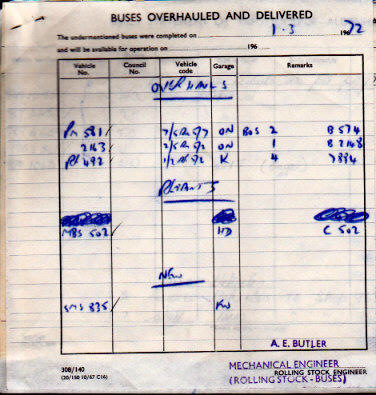 BUSES OVERHAULED AND DELIVERED
The undermentioned buses were completed on 1.3 1967 72
and will be available for operation on 196
Vehicle No. Council No. Vehicle code Garage Remarks
OVERHAULS
RM 581 7/5RM5/7 ON BOS 2 B 574
2143 2/5RM5/2 ON 1 B 2148
RF 492 1/2RF5/2 K 4 7894
REPAINTS
MBS 502 HD C 502
NEW
SMS 835 KW
A. E. BUTLER
308/140
(20/150 10/67 C16)
MECHANICAL ENGINEER
ROLLING STOCK ENGINEER
(ROLLING STOCK - BUSES)